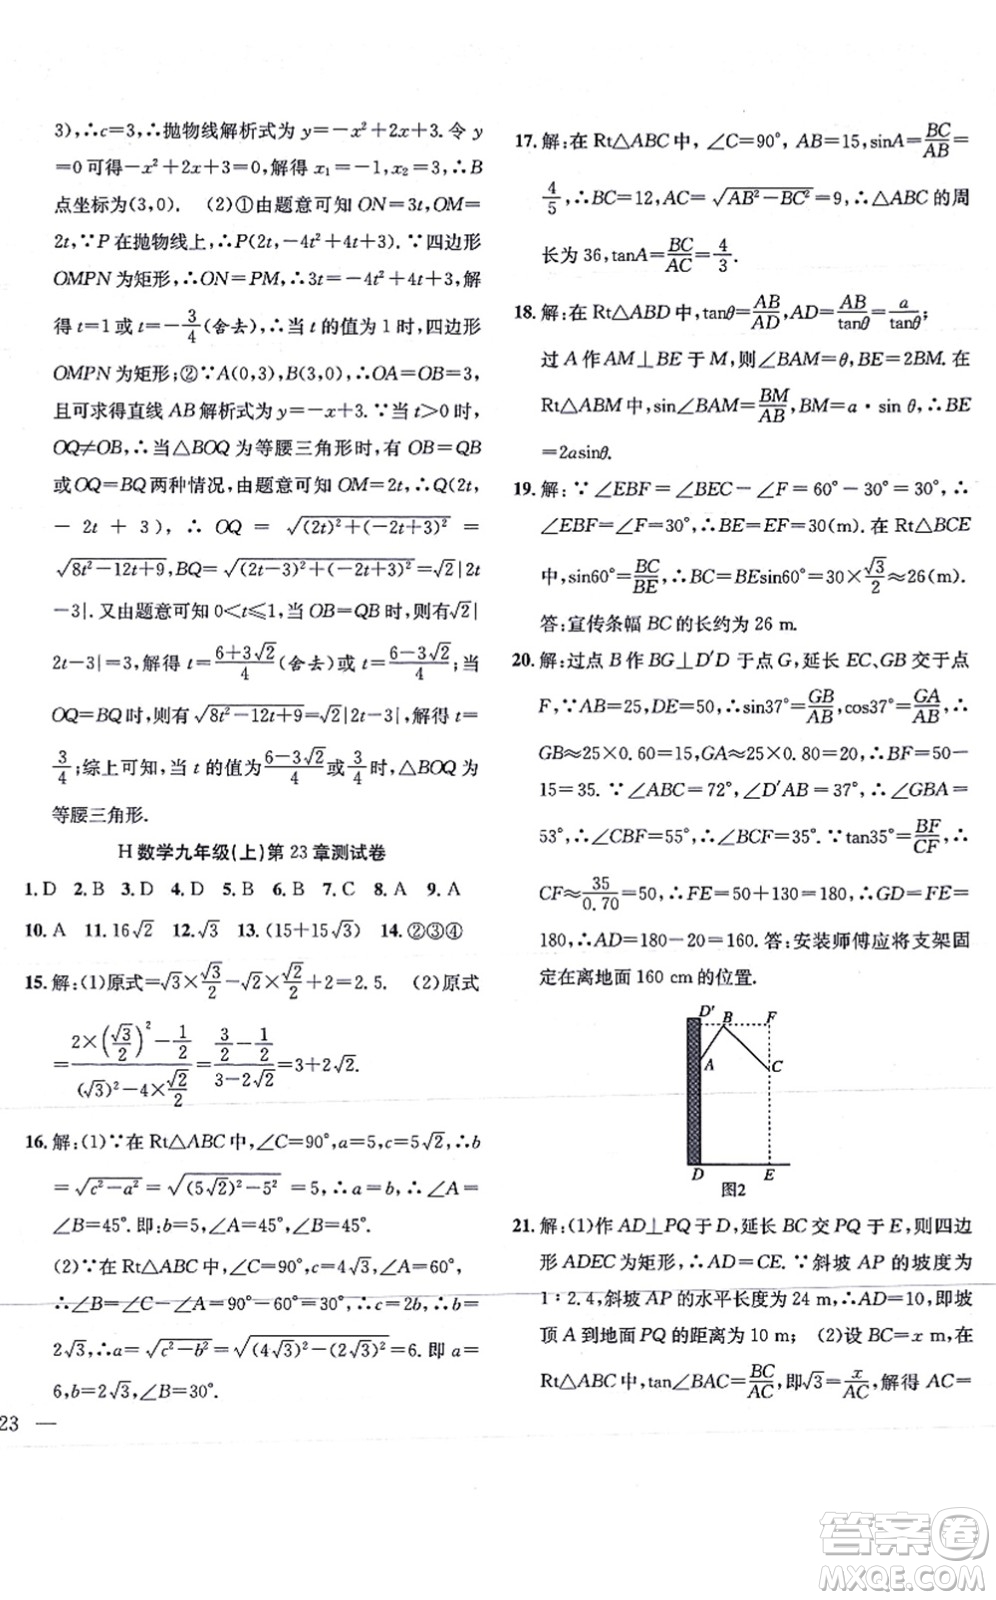 3),∴c=3,∴抛物线解析式为 y=-x²+2x+3.令 y
=0可得-x²+2x+3=0,解得 x₁=-1,x₂=3,∴B
点坐标为(3,0). (2)①由题意可知 ON=3t,OM=
2t,∵P 在抛物线上,∴P(2t,-4t²+4t+3).∵四边形
OMPN 为矩形,∴ON=PM,∴3t=-4t²+4t+3,解
得 t=1 或 t=-3/4(舍去),∴当 t 的值为 1 时,四边形
OMPN 为矩形;②∵A(0,3),B(3,0),∴OA=OB=3,
且可求得直线 AB 解析式为 y=-x+3.∵当 t>0 时,
OQ≠OB,∴当△BOQ 为等腰三角形时,有 OB=QB
或 OQ=BQ 两种情况,由题意可知 OM=2t,∴Q(2t,
-2t+3),∴OQ=√((2t)²+(-2t+3)²)=
√(8t²-12t+9),BQ=√((2t-3)²+(-2t+3)²)=√2|2t
-3|.又由题意可知 0<t≤1,当 OB=QB 时,则有√2|
2t-3|=3,解得 t=(6+3√2)/4(舍去)或 t=(6-3√2)/4;当
OQ=BQ 时,则有√(8t²-12t+9)=√2|2t-3|,解得 t=
3/4;综上可知,当 t 的值为(6-3√2)/4或3/4时,△BOQ 为
等腰三角形.
H 数学九年级(上)第 23 章测试卷
1. D 2. B 3. D 4. D 5. B 6. B 7. C 8. A 9. A
10. A 11. 16√2 12. √3 13. (15+15√3) 14. ②③④
15. 解:(1)原式=√3×√3/2-√2×√2/2+2=2.5. (2)原式
=(2×(√3/2)²-1/2)/((√3)²-4×√2/2)=(3/2-1/2)/(3-2√2)=3+2√2.
16. 解:(1)∵在 Rt△ABC 中,∠C=90°,a=5,c=5√2,∴b
=√(c²-a²)=√((5√2)²-5²)=5,∴a=b,∴∠A=
∠B=45°.即:b=5,∠A=∠B=45°.
(2)∵在 Rt△ABC 中,∠C=90°,c=4√3,∠A=60°,
∴∠B=∠C-∠A=90°-60°=30°,∴b=1/2c,∴b=
2√3,∴a=√(c²-b²)=√((4√3)²-(2√3)²)=6.即 a=
6,b=2√3,∠B=30°.
23 —
17. 解:在 Rt△ABC 中,∠C=90°,AB=15,sinA=BC/AB=
4/5,∴BC=12,AC=√(AB²-BC²)=9,∴△ABC 的周
长为 36,tanA=BC/AC=4/3.
18. 解:在 Rt△ABD 中,tanθ=AB/AD,AD=AB/tanθ=a/tanθ;
过 A 作 AM⊥BE 于 M,则∠BAM=θ,BE=2BM.在
Rt△ABM 中,sin∠BAM=BM/AB,BM=a·sin θ,∴BE
=2asinθ.
19. 解:∵∠EBF=∠BEC-∠F=60°-30°=30°,∴
∠EBF=∠F=30°,∴BE=EF=30(m).在 Rt△BCE
中,sin60°=BC/BE,∴BC=BEsin60°=30×√3/2≈26(m).
答:宣传条幅 BC 的长约为 26 m.
20. 解:过点 B 作 BG⊥D′D 于点 G,延长 EC、GB 交于点
F,∵AB=25,DE=50,∴sin37°=GB/AB,cos37°=GA/AB,∴
GB≈25×0.60=15,GA≈25×0.80=20,∴BF=50-
15=35.∵∠ABC=72°,∠D′AB=37°,∴∠GBA=
53°,∴∠CBF=55°,∴∠BCF=35°.∵tan35°=BF/CF,∴
CF≈35/0.70=50,∴FE=50+130=180,∴GD=FE=
180,∴AD=180-20=160.答:安装师傅应将支架固
定在离地面 160 cm 的位置.
D′ B F
A C
D E
图2
21. 解:(1)作 AD⊥PQ 于 D,延长 BC 交 PQ 于 E,则四边
形 ADEC 为矩形,∴AD=CE.∵斜坡 AP 的坡度为
1∶2.4,斜坡 AP 的水平长度为 24 m,∴AD=10,即坡
顶 A 到地面 PQ 的距离为 10 m; (2)设 BC=x m,在
Rt△ABC 中,tan∠BAC=BC/AC,即√3=x/AC,解得 AC=
答案卷
MXQE.COM